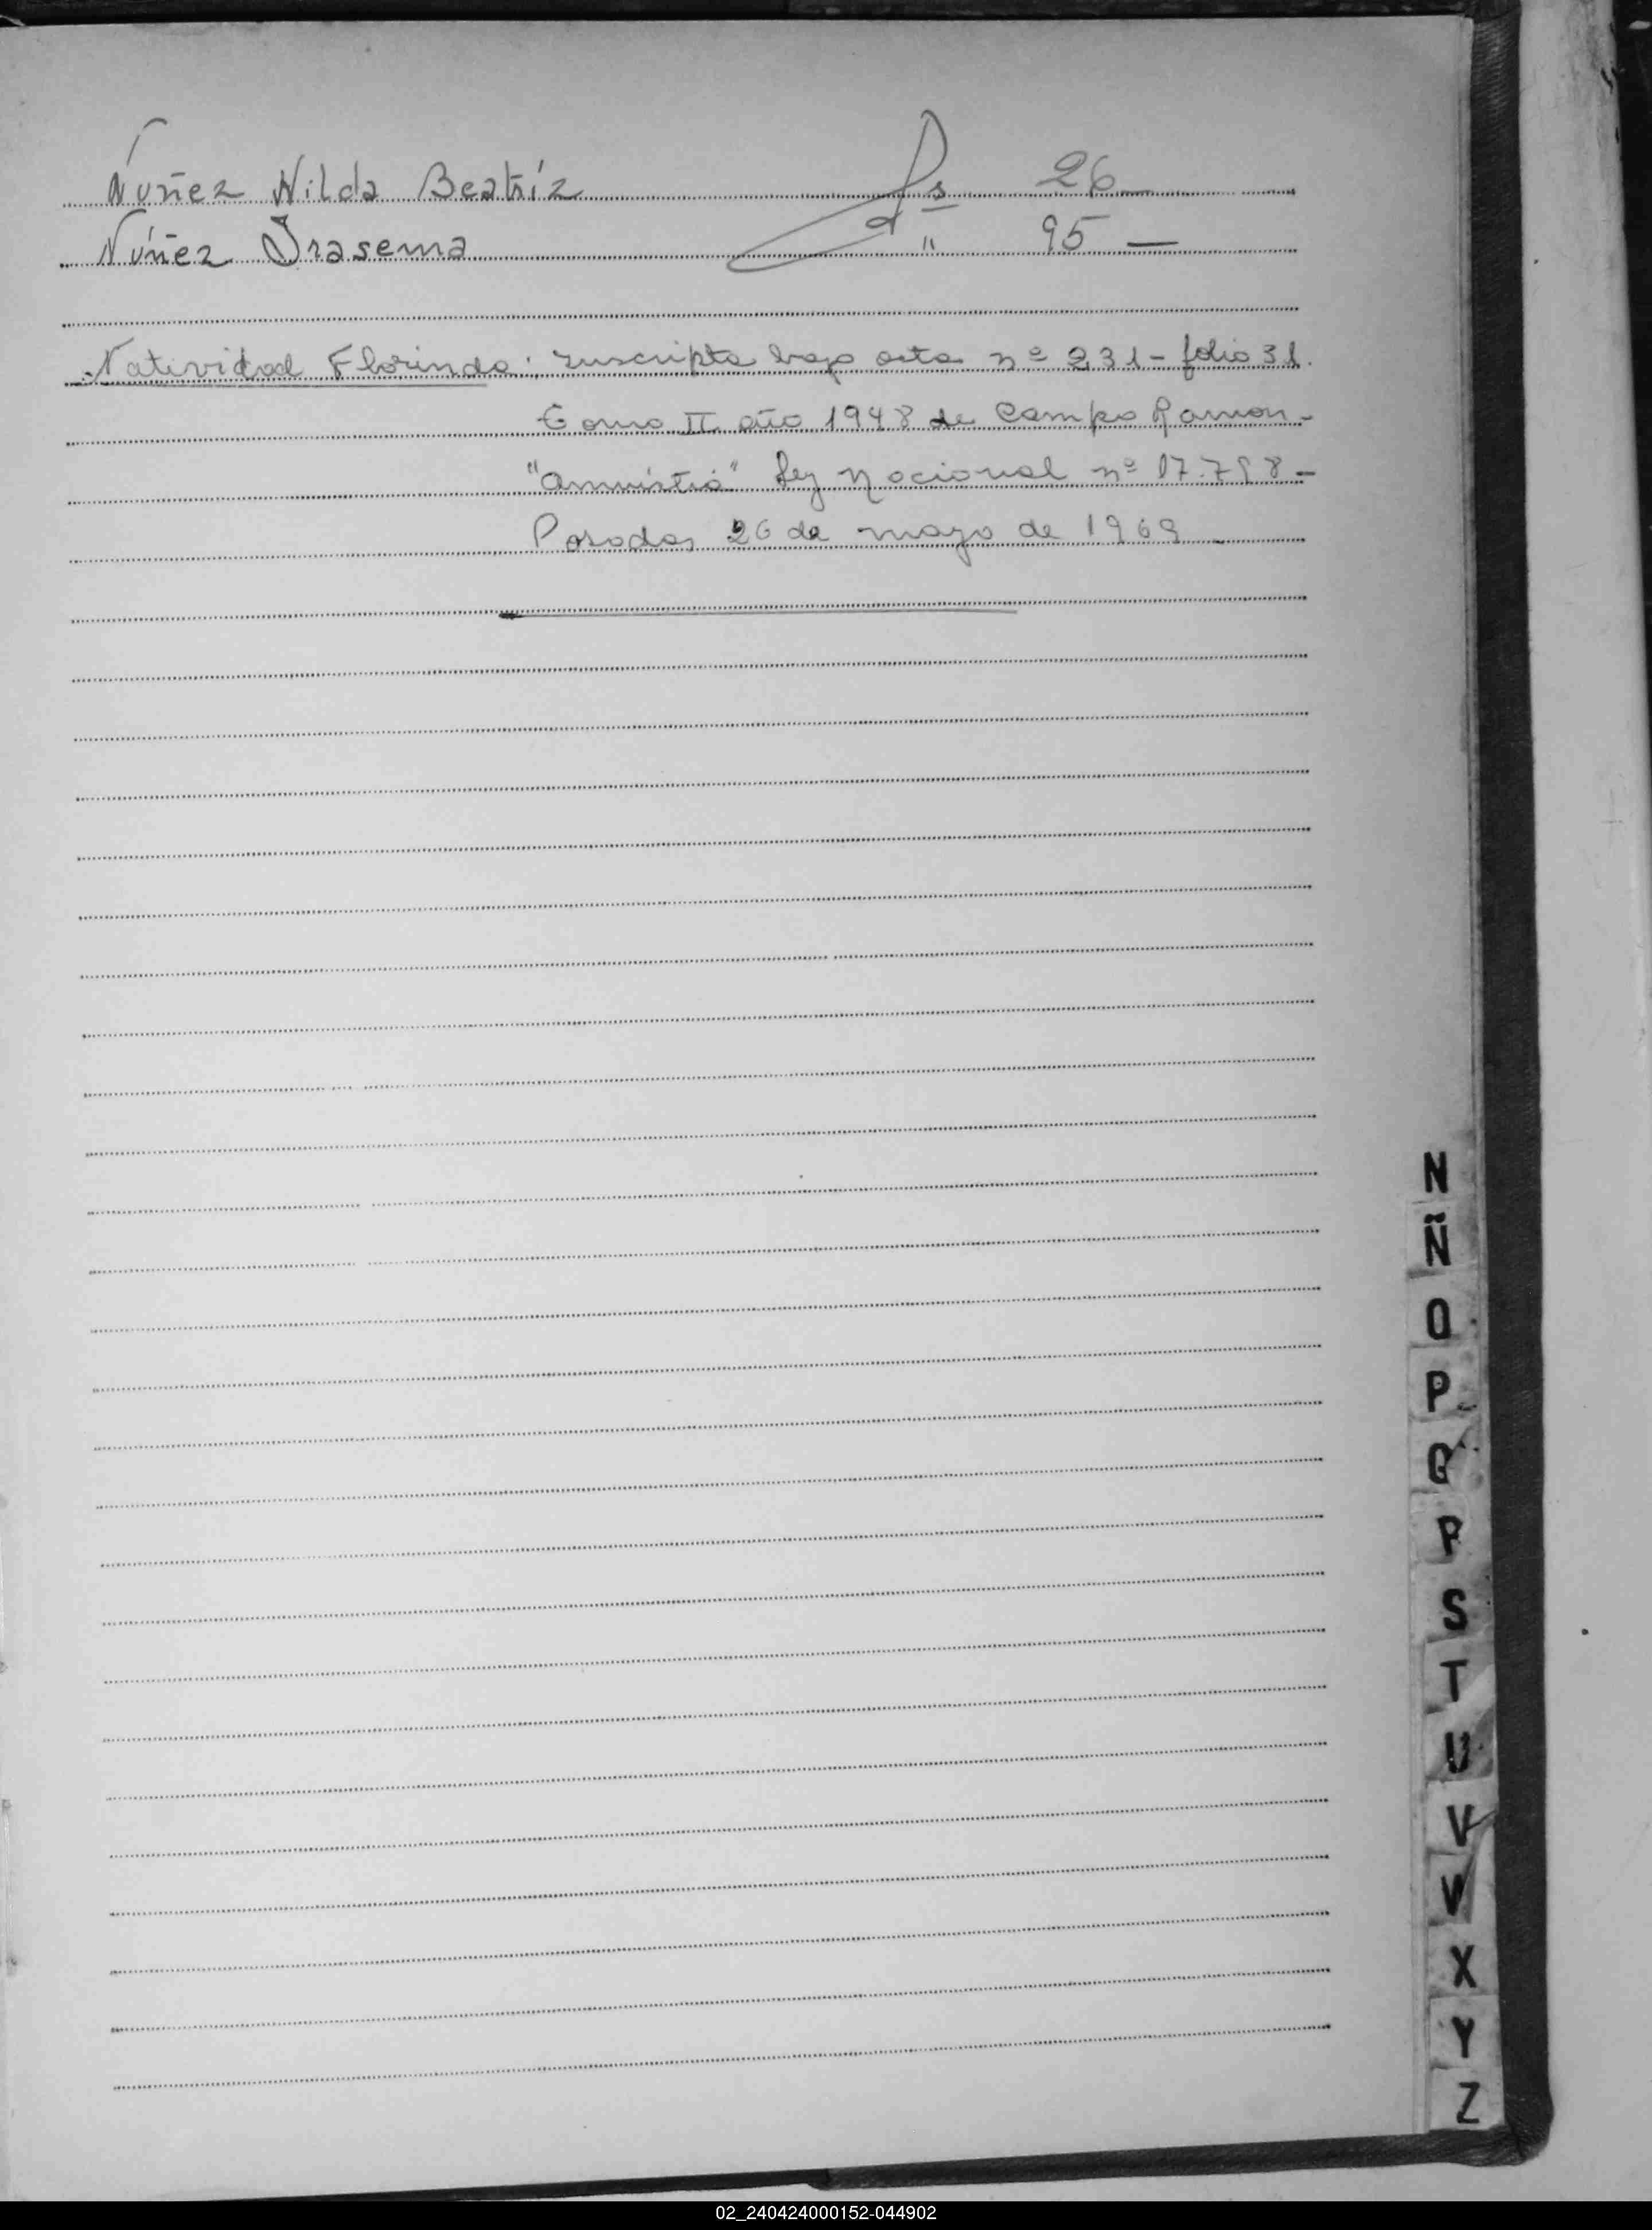 Núñez Nilda Beatríz fs 26 —
Núñez Irasema " 95 —
Natividad Florinda: inscripta bajo acta nº 231 - folio 31.
Tomo II año 1948 de Campo Ramon -
"Amnistia" Ley Nacional nº 17.798 -
Posadas 26 de mayo de 1969 -
N
Ñ
O
P
Q
R
S
T
U
V
W
X
Y
Z
02_240424000152-044902